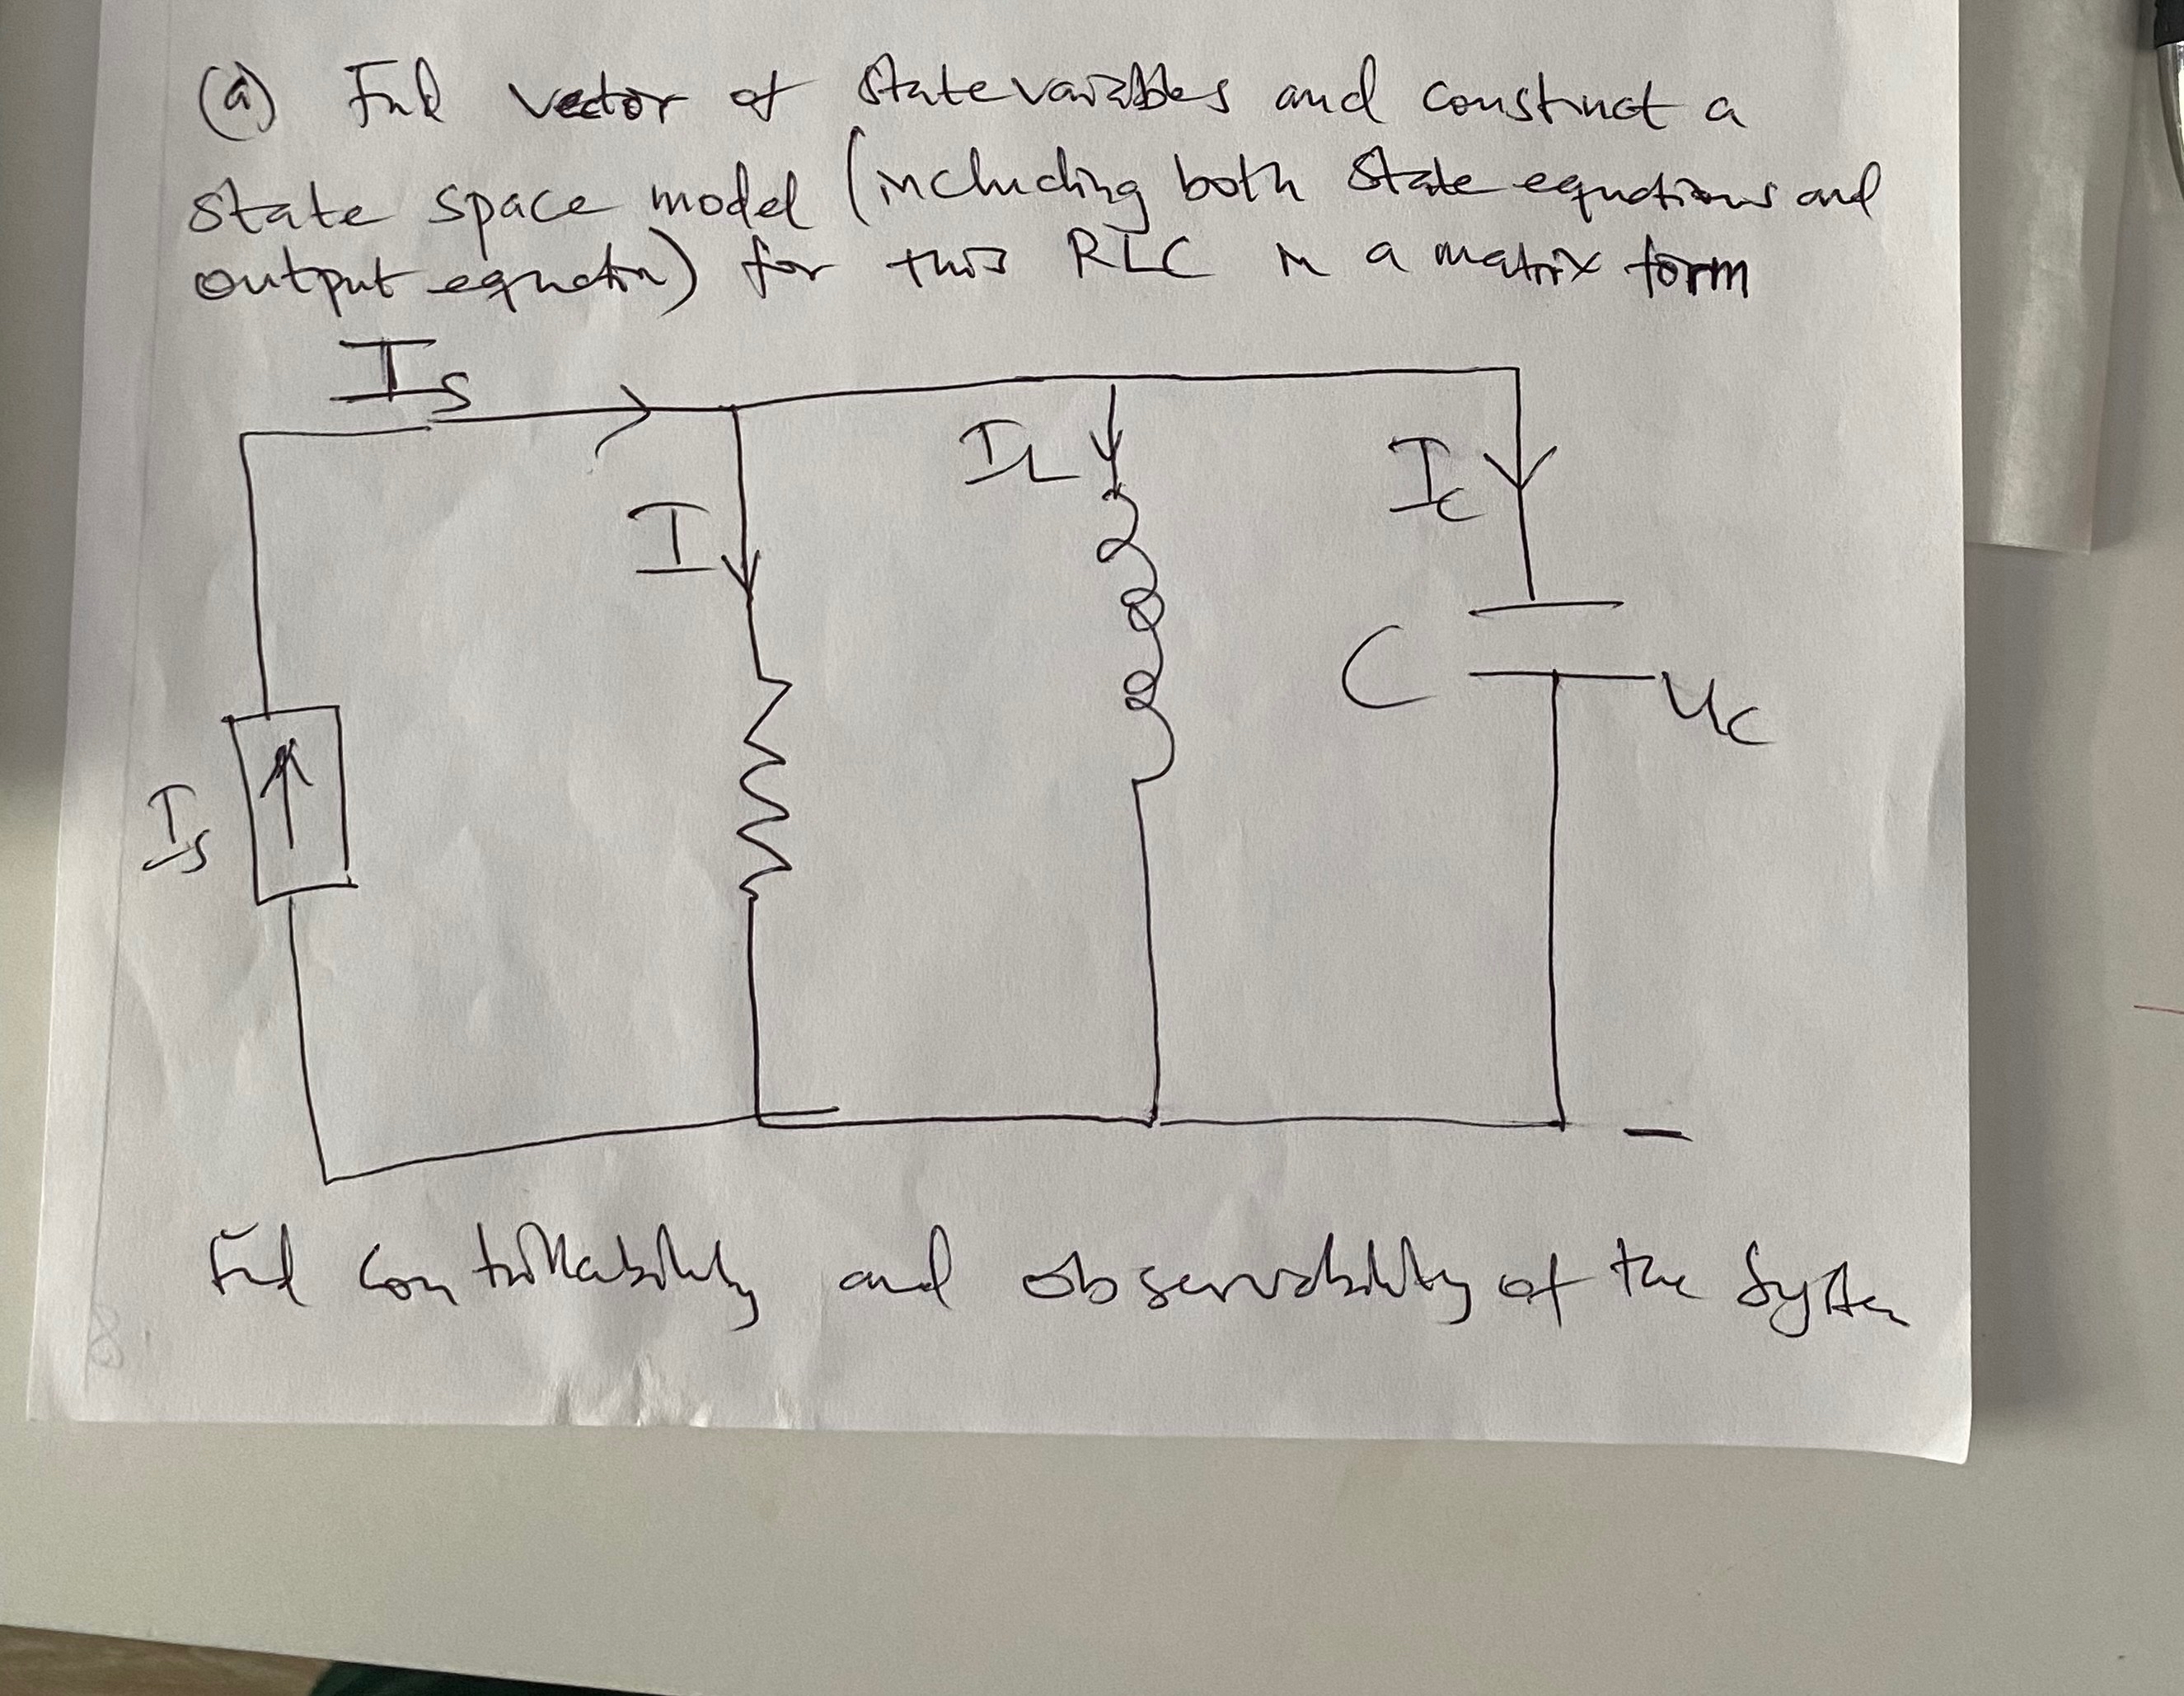 (a) Find vector of state variables and construct a
state space model (including both state equations and
output equation) for this RLC in a matrix form
Is
I
IL
Ic
C
uc
Is
-
Find controllability and observability of the system